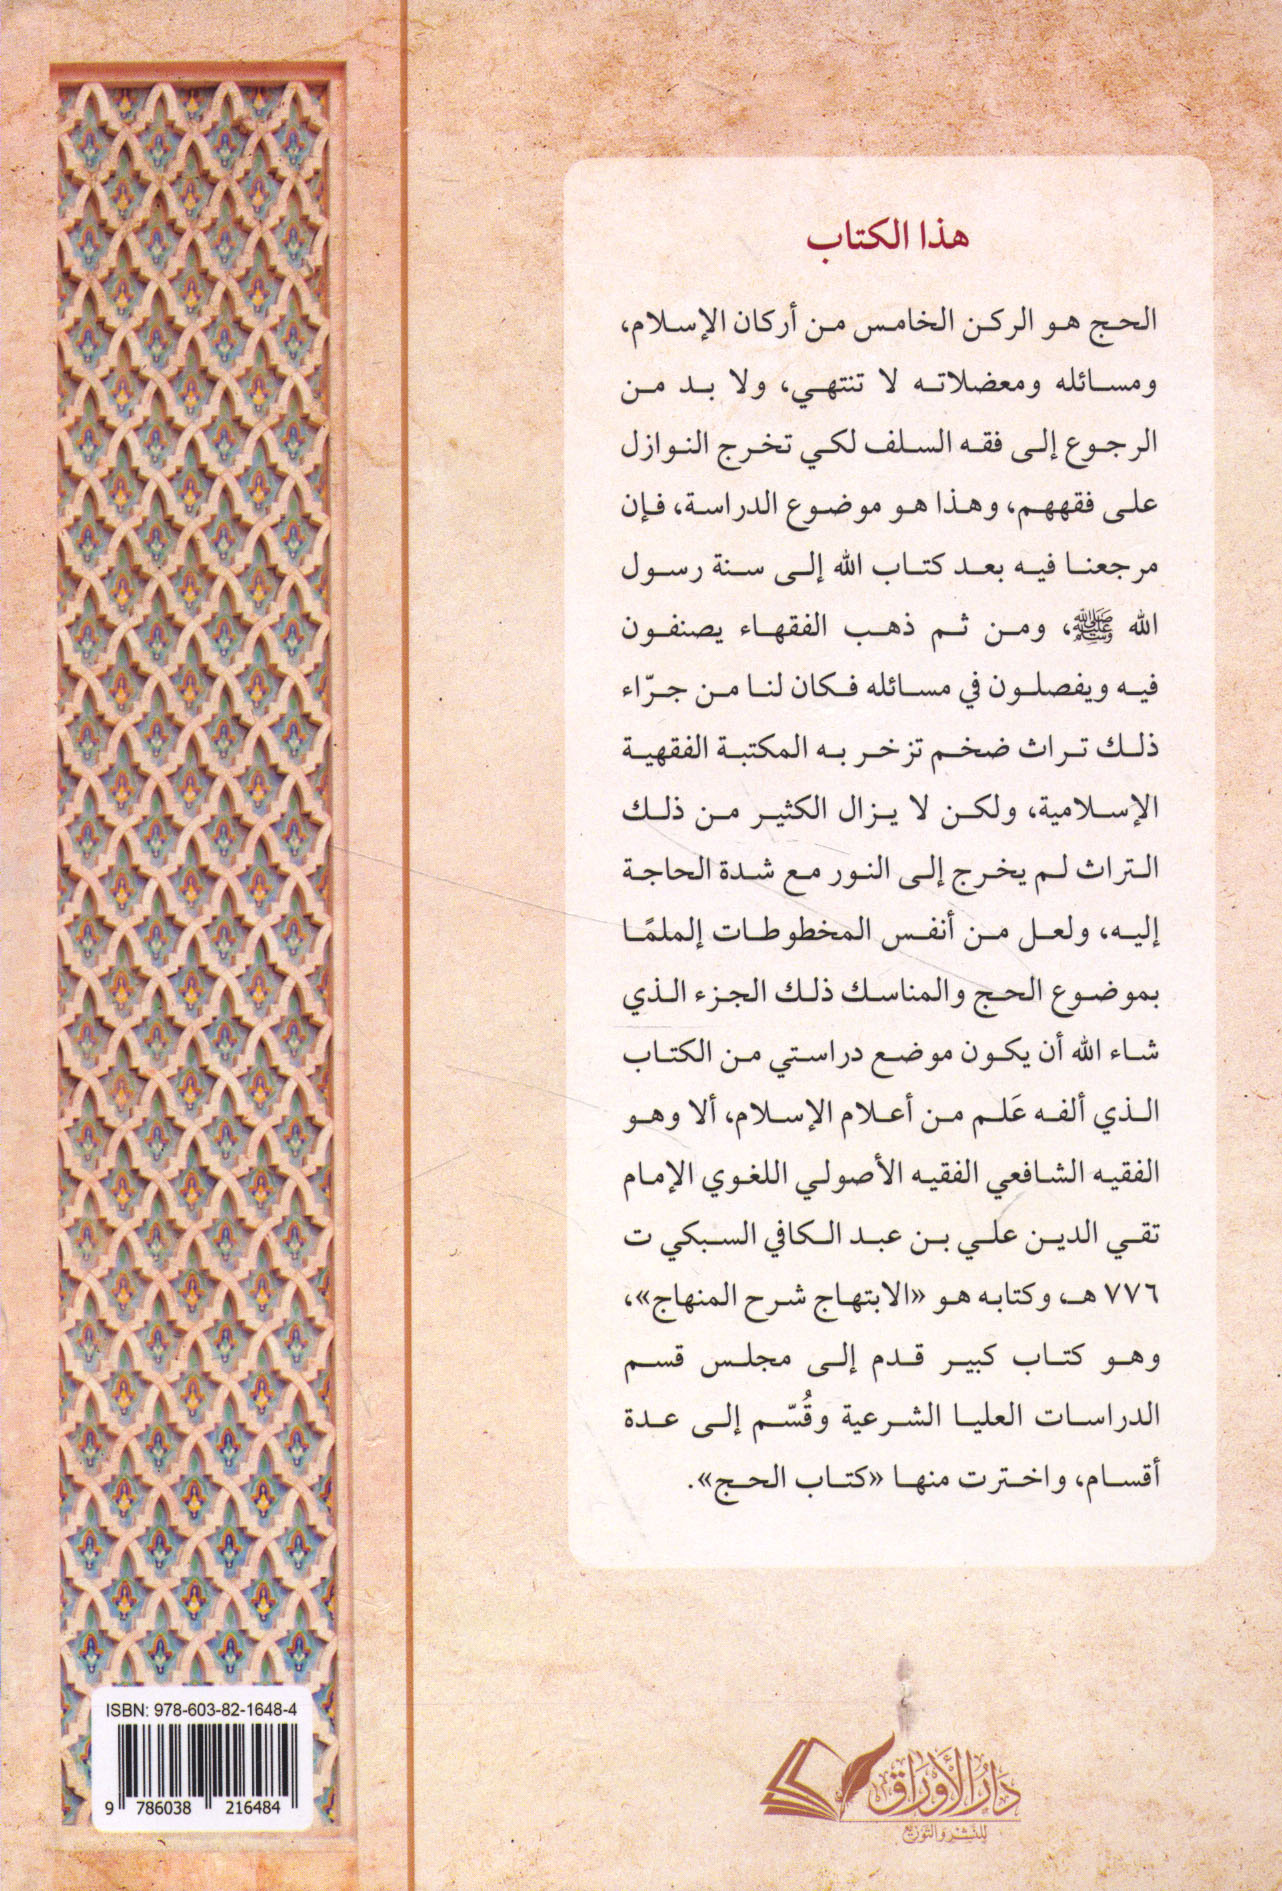 هذا الكتاب
الحج هو الركن الخامس من أركان الإسلام،
ومسائله ومعضلاته لا تنتهي، ولا بد من
الرجوع إلى فقه السلف لكي تخرج النوازل
على فقههم، وهذا هو موضوع الدراسة، فإن
مرجعنا فيه بعد كتاب الله إلى سنة رسول
الله ﷺ، ومن ثم ذهب الفقهاء يصنفون
فيه ويفصلون في مسائله فكان لنا من جرّاء
ذلك تراث ضخم تزخر به المكتبة الفقهية
الإسلامية، ولكن لا يزال الكثير من ذلك
التراث لم يخرج إلى النور مع شدة الحاجة
إليه، ولعل من أنفس المخطوطات إلملمًا
بموضوع الحج والمناسك ذلك الجزء الذي
شاء الله أن يكون موضع دراستي من الكتاب
الذي ألفه عَلم من أعلام الإسلام، ألا وهو
الفقيه الشافعي الفقيه الأصولي اللغوي الإمام
تقي الدين علي بن عبد الكافي السبكي ت
٧٧٦ هـ، وكتابه هو «الابتهاج شرح المنهاج»،
وهو كتاب كبير قدم إلى مجلس قسم
الدراسات العليا الشرعية وقُسّم إلى عدة
أقسام، واخترت منها «كتاب الحج».
ISBN: 978-603-82-1648-4
9 786038 216484
دَارُ الأَوْرَاق
لِلنَّشْرِ وَالتَّوْزِيع